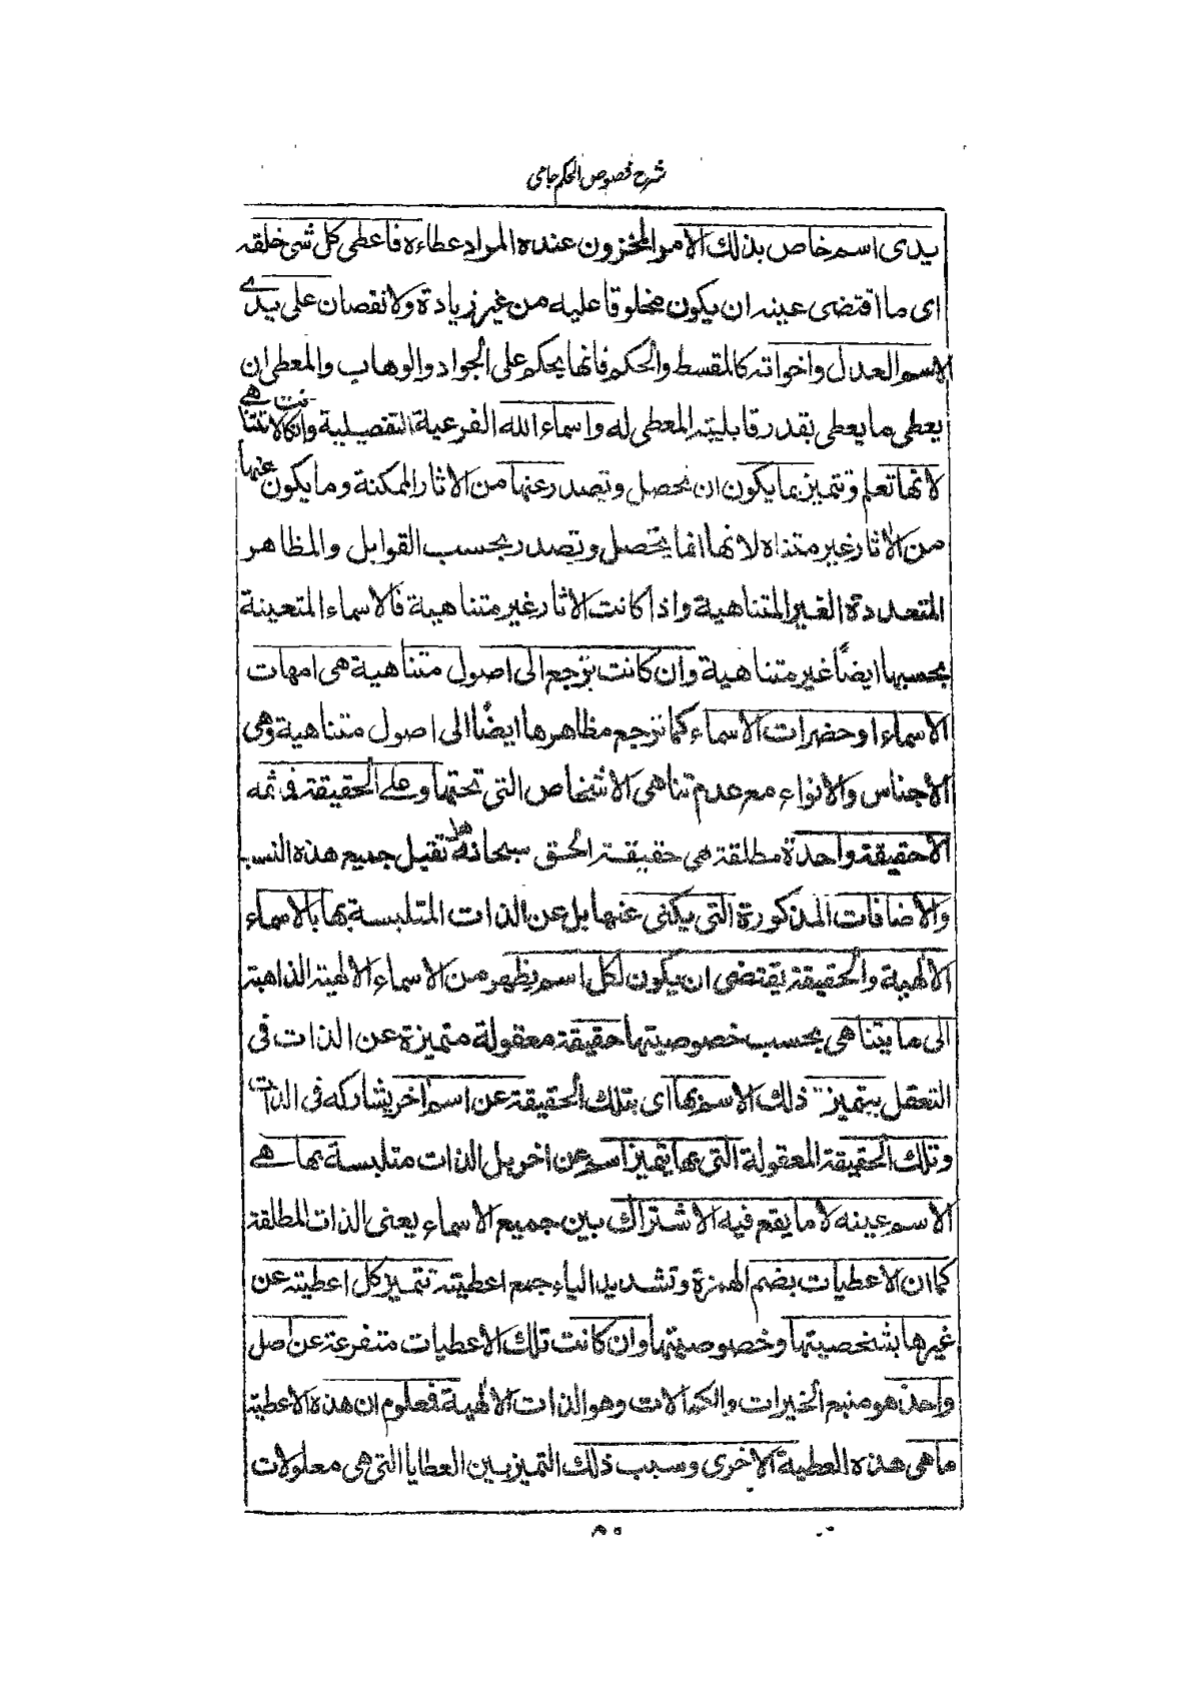 شرح فصوص الحکم جامی
يدى اسم خاص بذلك الامر المخزون عنده المراد عطاءه فاعطى كل شئ خلقه
اى ما اقتضى عينه ان يكون مخلوقا عليه من غير زيادة ولا نقصان على يدے
الاسم العدل واخواته كالمقسط والحكم فانها يحكم على الجواد والوهاب والمعطى ان
يعطى ما يعطى بقدر قابلية المعطى له واسماء الله الفرعية التفصيلية وان كانت لا تتناهے
لانها تعلم وتتميز بما يكون ان يحصل وتصدر عنها من الاثار الممكنة وما يكون عنها
من الاثار غير متناه لانها انما يحصل وتصدر بحسب القوابل والمظاهر
المتعددة الغير المتناهية واذا كانت الاثار غير متناهية فالاسماء المتعينة
بحسبها ايضًا غير متناهية وان كانت ترجع الى اصول متناهية هى امهات
الاسماء او حضرات الاسماء كما ترجع مظاهرها ايضًا الى اصول متناهية وهى
الاجناس والانواع مع عدم تناهى الاشخاص التى تحتها وعلى الحقيقة فما ثمه
الا حقيقة واحدة مطلقة هى حقيقة الحق سبحانه تقبل جميع هذه النسب
والاضافات المذكورة التى يكنى عنها بل عن الذات المتلبسة بها بالاسماء
الالٰهية والحقيقة يقتضى ان يكون لكل اسم يظهر من الاسماء الالهية الذاهبة
الى ما يتناهى بحسب خصوصيتها حقيقة معقولة متميزة عن الذات فى
التعقل يتميز ذلك الاسم بها اى بتلك الحقيقة عن اسم اٰخر يشاركه فى الذات
وتلك الحقيقة المعقولة التى بها يتميز اسم عن اخر بل الذات متلبسة بها هے
الاسم عينه لا ما يقع فيه الاشتراك بين جميع الاسماء يعنى الذات المطلقة
كما ان الاعطيات بضم الهمزة وتشديد الياء جمع اعطية تتميز كل اعطية عن
غيرها بشخصيتها وخصوصيتها وان كانت تلك الاعطيات متفرعة عن اصل
واحد هو منبع الخيرات والكمالات وهو الذات الالٰهية فمعلوم ان هذه الاعطية
ما هى هذه العطية الاخرى وسبب ذلك التميز بين العطايا التى هى معلولات